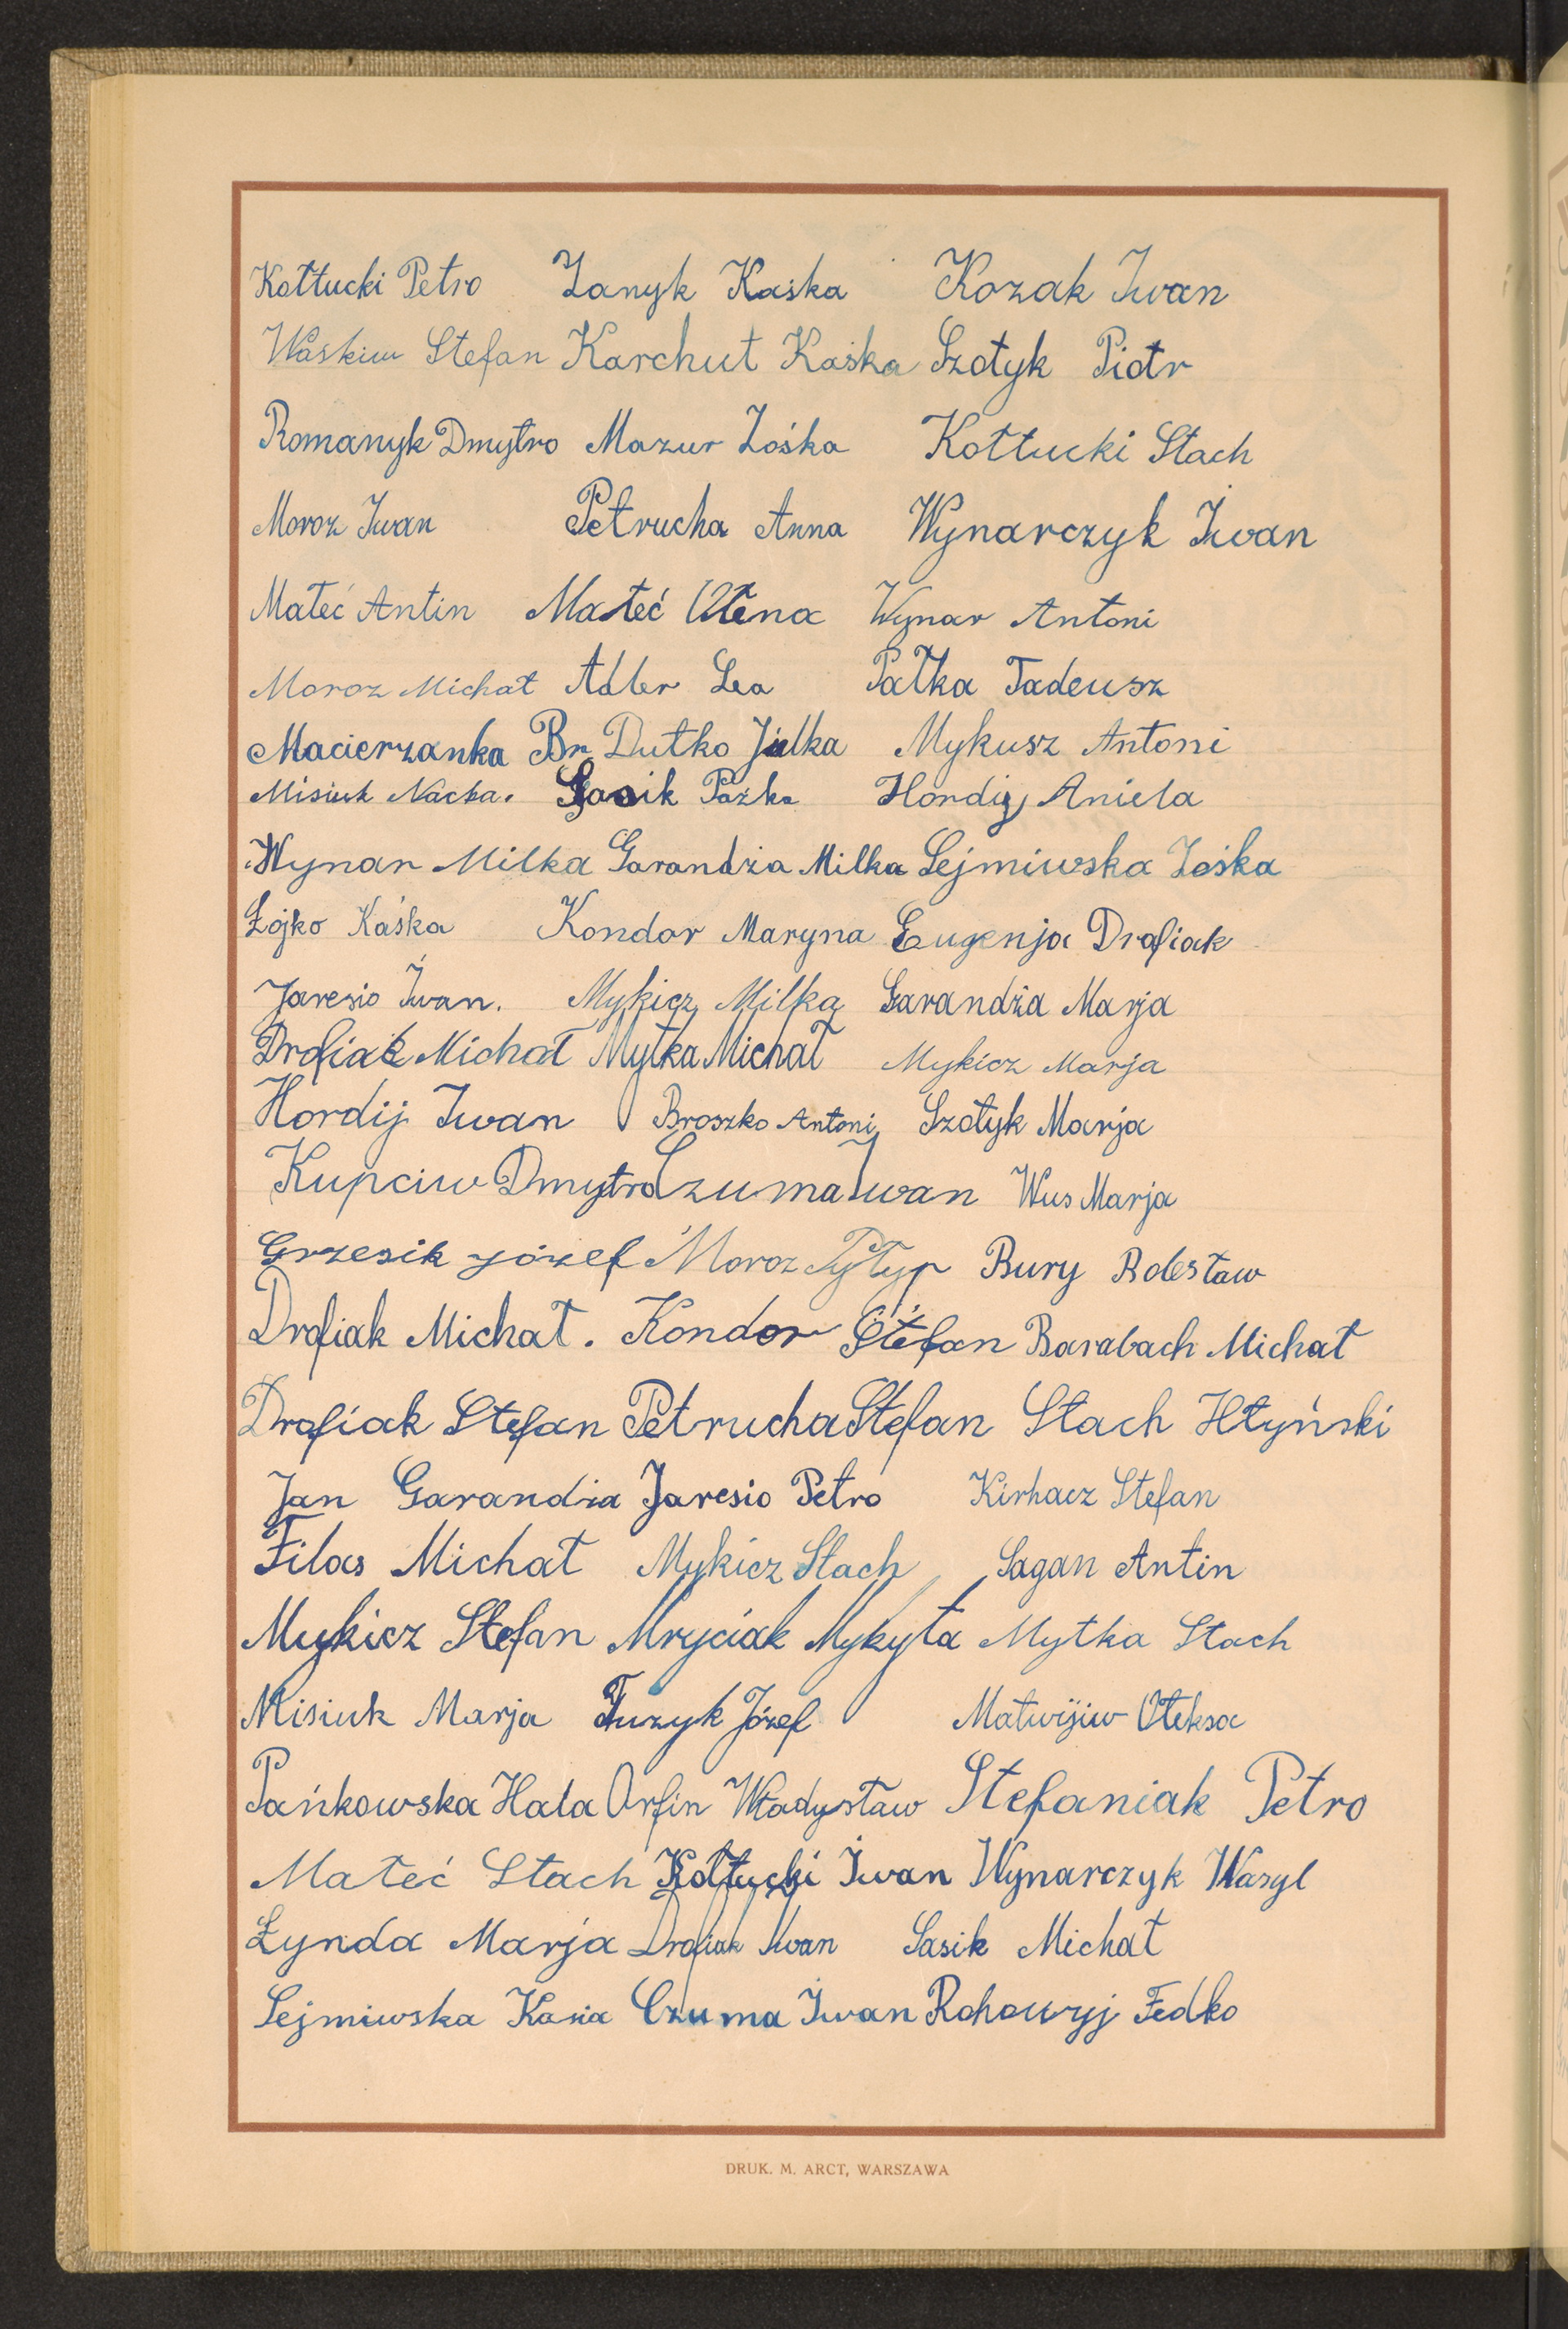 Kołtucki Petro Zanyk Kaśka Kozak Iwan
Waskiw Stefan Karchut Kaśka Szotyk Piotr
Romanyk Dmytro Mazur Zośka Kołtucki Stach
Moroz Iwan Petrucha Anna Wynarczyk Iwan
Mateć Antin Mateć Ołena Wynar Antoni
Moroz Michał Adler Lea Pałka Tadeusz
Macierzanka Br Dutko Julka Mykusz Antoni
Misiuk Nacka. Sasik Pazka Hordij Aniela
Wynar Milka Garandża Milka Sejmiwska Zośka
Łojko Kaśka Kondor Maryna Eugenja Drofiak
Jaresio Iwan. Mykicz Milka Garandża Marja
Drofiak Michał Mytka Michał Mykicz Marja
Hordij Iwan Broszko Antoni Szotyk Marja
Kupciw Dmytro Czuma Iwan Wus Marja
Grzesik Józef Moroz Pyłyp Bury Bolesław
Drofiak Michał. Kondor Stefan Barabach Michał
Drofiak Stefan Petrucha Stefan Stach Hłyński
Jan Garandża Jaresio Petro Kirhacz Stefan
Filas Michał Mykicz Stach Sagan Antin
Mykicz Stefan Mryciak Mykyta Mytka Stach
Misiuk Marja Tuzyk Józef Matwijiw Ołeksa
Pańkowska Hala Orfin Władysław Stefaniak Petro
Mateć Stach Kołtucki Iwan Wynarczyk Wasyl
Łynda Marja Drofiak Iwan Sasik Michał
Sejmiwska Kasia Czuma Iwan Rohowyj Fedko
DRUK. M. ARCT, WARSZAWA